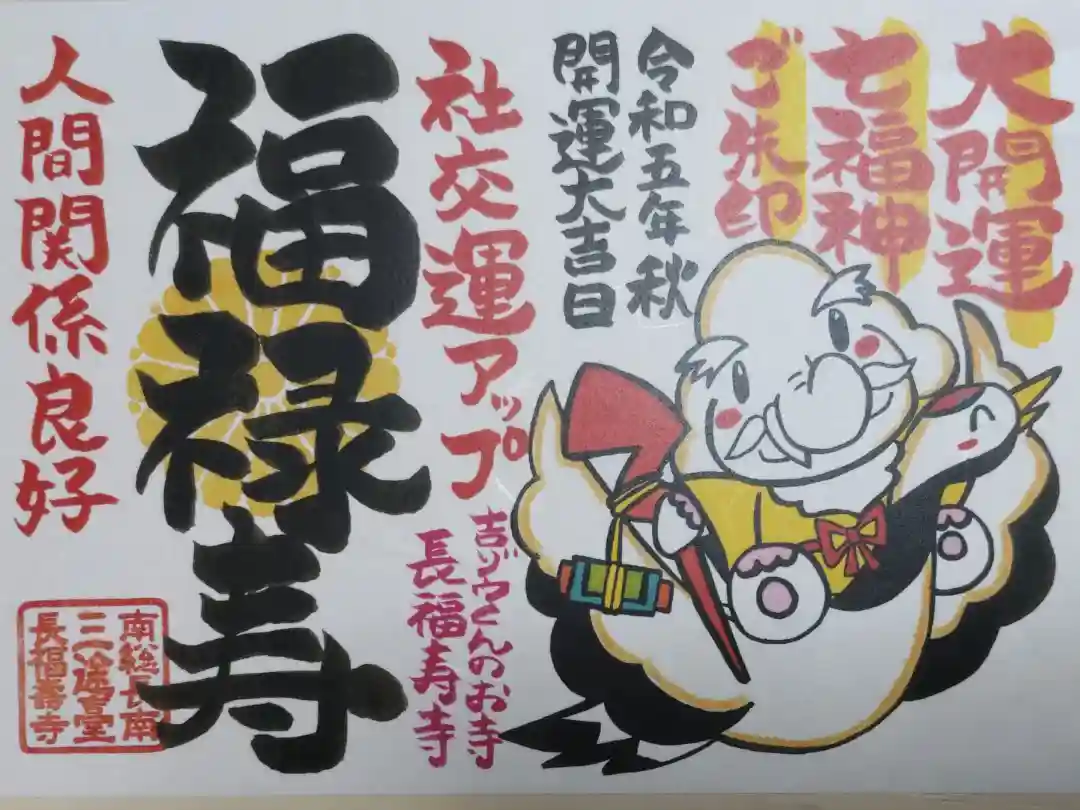 大開運
七福神
ご朱印
令和五年秋
開運大吉日
社交運アップ
吉ゾウくんのお寺
長福寿寺
福禄寿
人間関係良好
南総長南
三途臺
長福壽寺